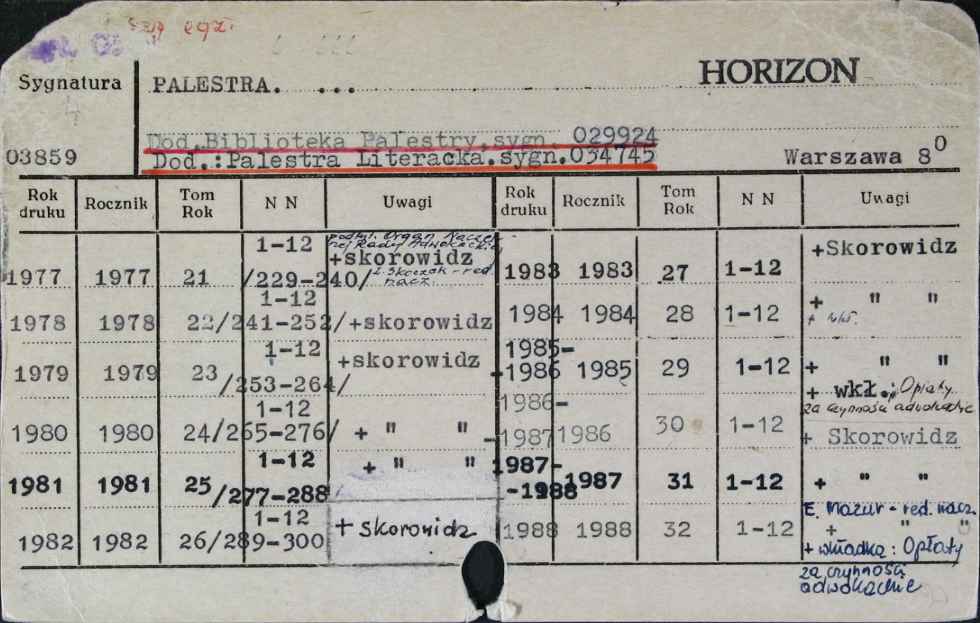 egz.
Sygnatura
PALESTRA. ...
HORIZON
Dod.Biblioteka Palestry,sygn. 029924
03859
Dod.:Palestra Literacka.sygn.034745
Warszawa 8⁰
Rok druku Rocznik Tom Rok N N Uwagi Rok druku Rocznik Tom Rok N N Uwagi
1977 1977 21 1-12 /229-240/ podtyt. Organ Naczelnej Rady Adwokackiej +skorowidz Z. Skoczek - red. nacz.
1978 1978 22 1-12 /241-252/ +skorowidz
1979 1979 23 1-12 /253-264/ +skorowidz
1980 1980 24 1-12 /265-276/ + " "
1981 1981 25 1-12 /277-288/ + " "
1982 1982 26 1-12 /289-300 + skorowidz
1983 1983 27 1-12 +Skorowidz
1984 1984 28 1-12 + " "
1985-1986 1985 29 1-12 + " " + wkł.: Opłaty za czynności adwokackie
1986-1987 1986 30 1-12 + Skorowidz
1987-1988 1987 31 1-12 + " "
1988 1988 32 1-12 E. Mazur - red. nacz. + " " + wkładka: Opłaty za czynności adwokackie